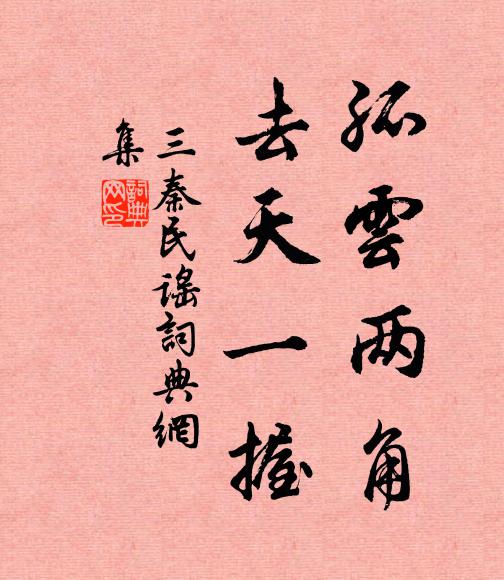 孤雲两角
去天一握
三秦民谣詞典網
集
詞典
网印